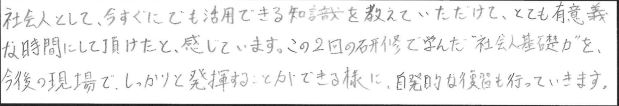 社会人として、今すぐにでも活用できる知識を教えていただけて、とても有意義
な時間にして頂けたと、感じています。この2回の研修で学んだ"社会人基礎力"を、
今後の現場で、しっかりと発揮することができる様に、自発的な復習も行っていきます。